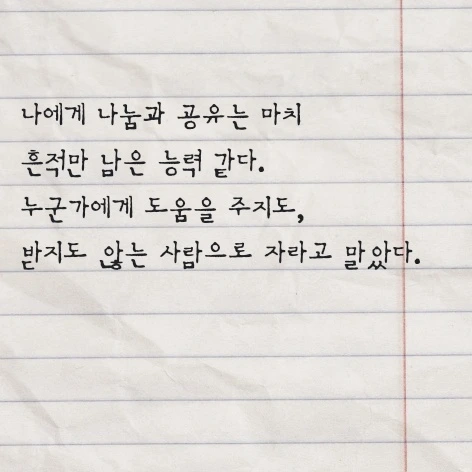 나에게 나눔과 공유는 마치
흔적만 남은 능력 같다.
누군가에게 도움을 주지도,
받지도 않는 사람으로 자라고 말았다.